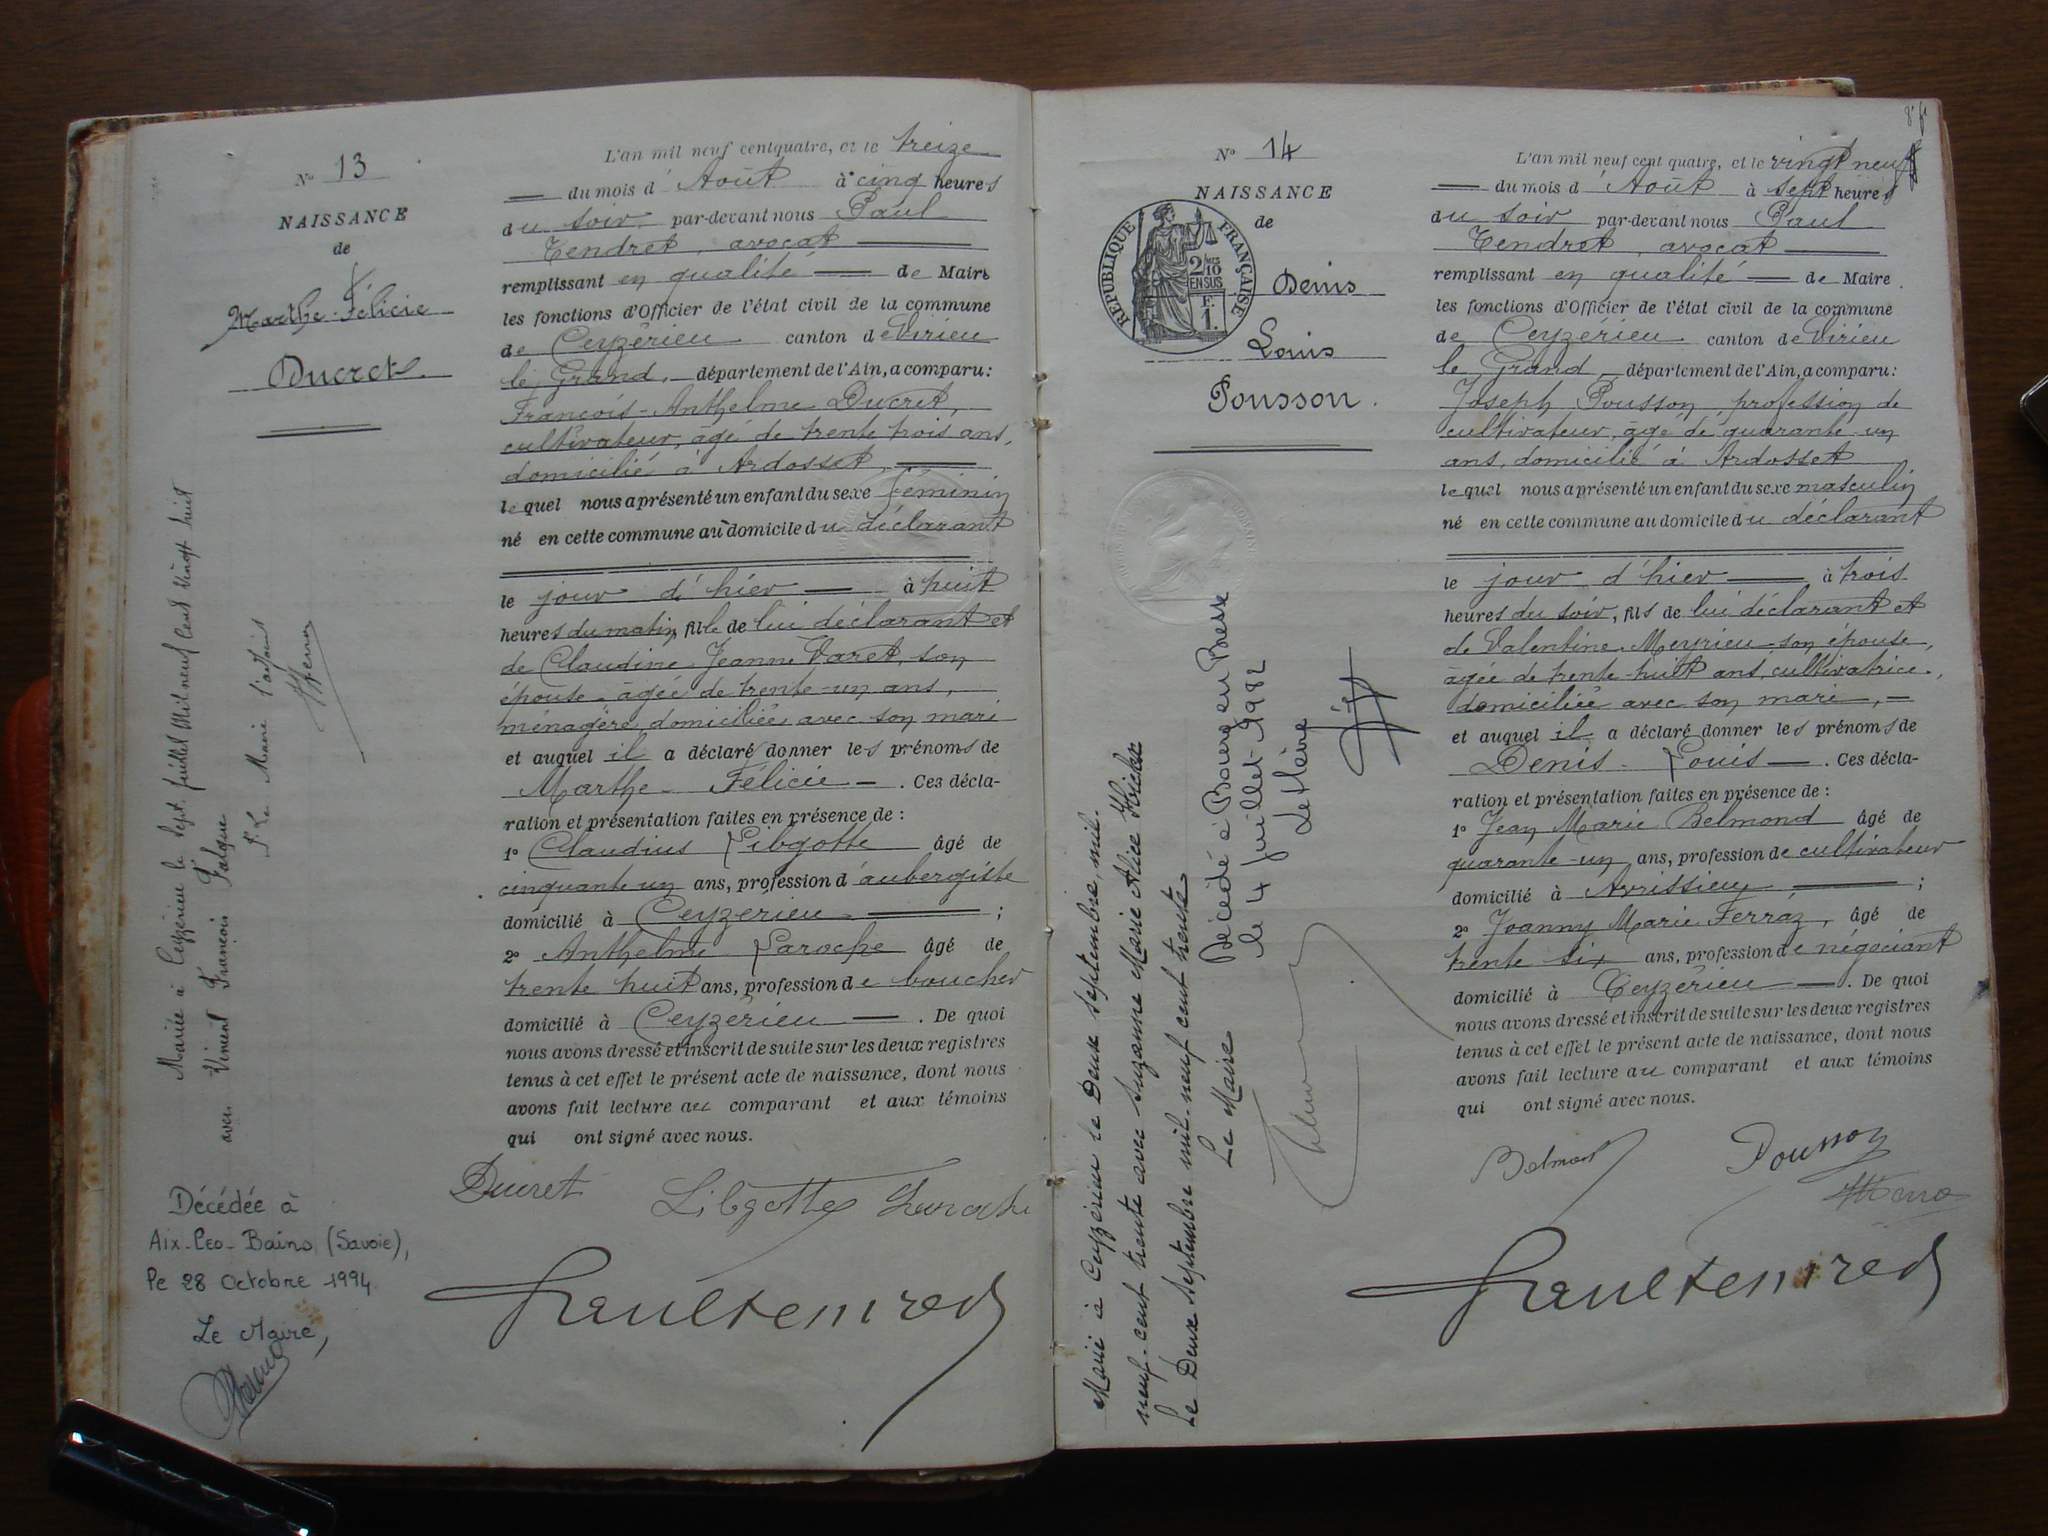 N° 13
NAISSANCE
de
Marthe-Félicie
Ducret
L'an mil neuf cent quatre, et le treize
du mois d'Août à cinq heures
du soir par-devant nous Paul
Tendret, avocat
remplissant en qualité de Maire
les fonctions d'Officier de l'état civil de la commune
de Ceyzérieu canton de Virieu
le Grand, département de l'Ain, a comparu :
François-Anthelme Ducret,
cultivateur, âgé de trente trois ans,
domicilié à Ardosset,
lequel nous a présenté un enfant du sexe féminin
né en cette commune au domicile du déclarant
le jour d'hier à huit
heures du matin, fille de lui déclarant et
de Claudine Jeanne Varet, son
épouse, âgée de trente-un ans,
ménagère, domiciliée avec son mari
et auquel il a déclaré donner les prénoms de
Marthe-Félicie. Ces décla-
ration et présentation faites en présence de :
1° Claudius Libgotte âgé de
cinquante un ans, profession d'aubergiste
domicilié à Ceyzerieu ;
2° Anthelme Laroche âgé de
trente huit ans, profession de boucher
domicilié à Ceyzérieu. De quoi
nous avons dressé et inscrit de suite sur les deux registres
tenus à cet effet le présent acte de naissance, dont nous
avons fait lecture au comparant et aux témoins
qui ont signé avec nous.
Ducret Libgotte Laroche
Paul Tendret
Mariée à Ceyzérieu le sept juillet Mil neuf cent vingt huit
avec Vincent François Falque
P. Le Maire l'adjoint
Décédée à
Aix-les-Bains (Savoie),
le 28 Octobre 1994
Le Maire,
N° 14
NAISSANCE
de
REPUBLIQUE FRANÇAISE
2/10
EN SUS
F.
1.
Denis
Louis
Pousson.
L'an mil neuf cent quatre, et le vingt neuf
du mois d'Août à sept heures
du soir par-devant nous Paul
Tendret, avocat
remplissant en qualité de Maire
les fonctions d'Officier de l'état civil de la commune
de Ceyzérieu canton de Virieu
le Grand, département de l'Ain, a comparu :
Joseph Pousson, profession de
cultivateur, âgé de quarante-un
ans, domicilié à Ardosset
lequel nous a présenté un enfant du sexe masculin
né en cette commune au domicile du déclarant
le jour d'hier à trois
heures du soir, fils de lui déclarant et
de Valentine Meyrieu, son épouse,
âgée de trente-huit ans, cultivatrice,
domiciliée avec son mari,
et auquel il a déclaré donner les prénoms de
Denis-Louis. Ces décla-
ration et présentation faites en présence de :
1° Jean Marie Belmond âgé de
quarante-un ans, profession de cultivateur
domicilié à Avrissieu ;
2° Joanny Marie Ferraz, âgé de
trente six ans, profession de négociant
domicilié à Ceyzérieu. De quoi
nous avons dressé et inscrit de suite sur les deux registres
tenus à cet effet le présent acte de naissance, dont nous
avons fait lecture au comparant et aux témoins
qui ont signé avec nous.
Belmont Pousson
Paul Tendret
Marié à Ceyzérieu le Deux septembre, mil-
neuf-cent trente avec Suzanne Marie Alice
Le Deux septembre mil-neuf cent trente
Le Maire
Décédé à Bourg en Bresse
le 4 juillet 1982
Le Maire